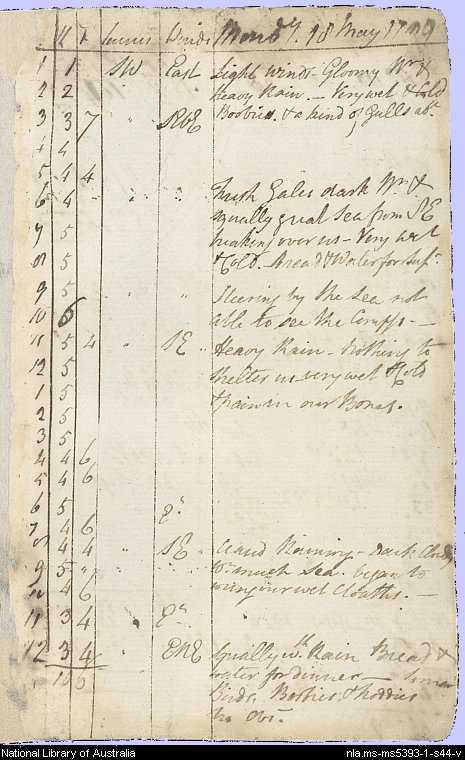 K F Courses Winds Mond.y 18 May 1789
1 1 SW East Light winds Gloomy Wr. &
2 2 Heavy Rain. – Very wet & Cold
3 3 7 " SEbE Boobies. & a kind of Gulls abt.
4 4
5 4 4
6 4 " " Fresh Gales dark Wr. &
squally great Sea from SE
7 5 breaking over us – Very wet
8 5 & Cold. Bread & Water for Supr.
9 5 " " Steering by the Sea not
10 6 able to see the Compss. —
11 5 4 " SE Heavy Rain – Nothing to
12 5 shelter us very wet & Cold
1 5 & pain in our Bones.
2 5
3 5
4 4 6
5 4 6
6 5
7 4 6
8 4 4 " SE Raining – dark Cloudy
9 5 " Wr. much Sea. began to
10 4 6 wring our wet Cloaths. —
11 3 4 "
12 3 4 " ENE Squally wth Rain Bread &
106 water for dinner — Some
Birds, Boobies & Noddies
Obs.
National Library of Australia
nla.ms-ms5393-1-s44-v